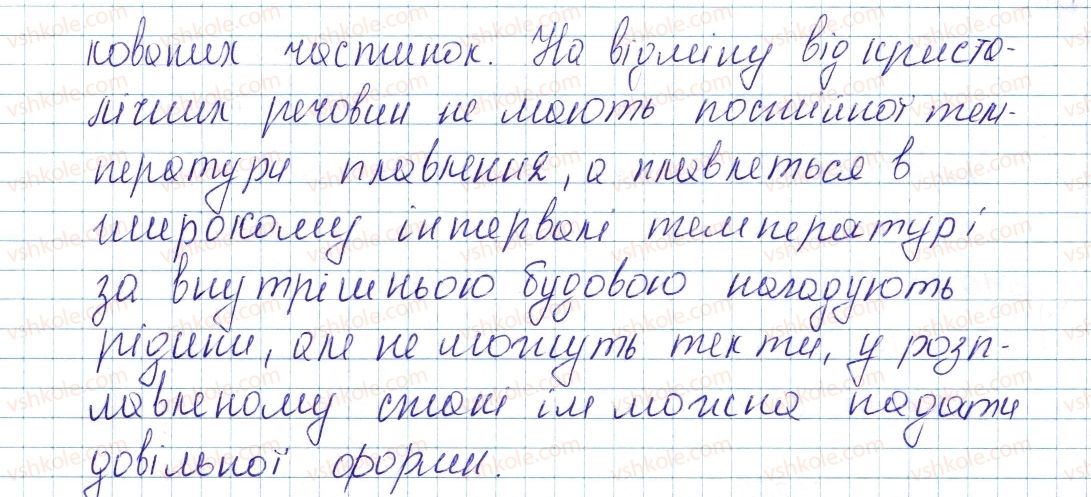 кованих частинок. На відміну від криста-
лічних речовин не мають постійної тем-
ператури плавлення, а плавлеться в
широкому інтервалі температур і
за внутрішньою будовою нагадують
рідини, але не можуть текти, у розп-
лавленому стані їм можна надати
довільної форми.